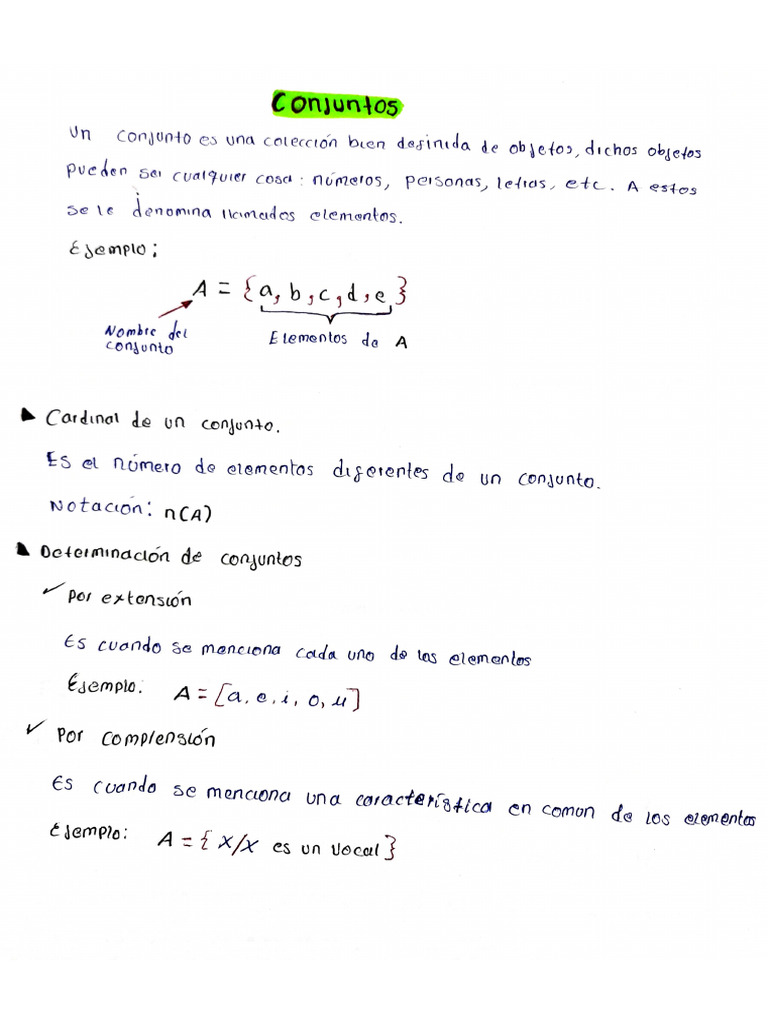 Conjuntos
Un conjunto es una colección bien definida de objetos, dichos objetos
pueden ser cualquier cosa: números, personas, letras, etc. A estos
se le denomina llamados elementos.
Ejemplo:
A = {a, b, c, d, e}
Nombre del
conjunto
Elementos de A
Cardinal de un conjunto.
Es el número de elementos diferentes de un conjunto.
Notación: n(A)
Determinación de conjuntos
✓ Por extensión
Es cuando se menciona cada uno de los elementos
Ejemplo: A = [a, e, i, o, u]
✓ Por complensión
Es cuando se menciona una característica en comun de los elementos
Ejemplo: A = { x/x es un vocal }